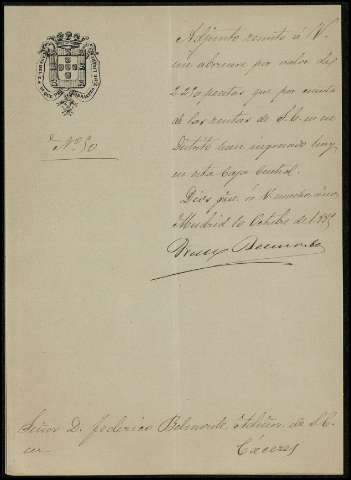 Nº 50
Adjunto remito á V.
un abonaré por valor de
2.270 pesetas que por cuenta
de las rentas de S. E. en ese
Distrito han ingresado hoy
en esta Caja Central.
Dios gue. á V. muchos años
Madrid 10 Octubre de 188
Señor D. Federico Belmonte, Admor. de S. E.
en Cáceres